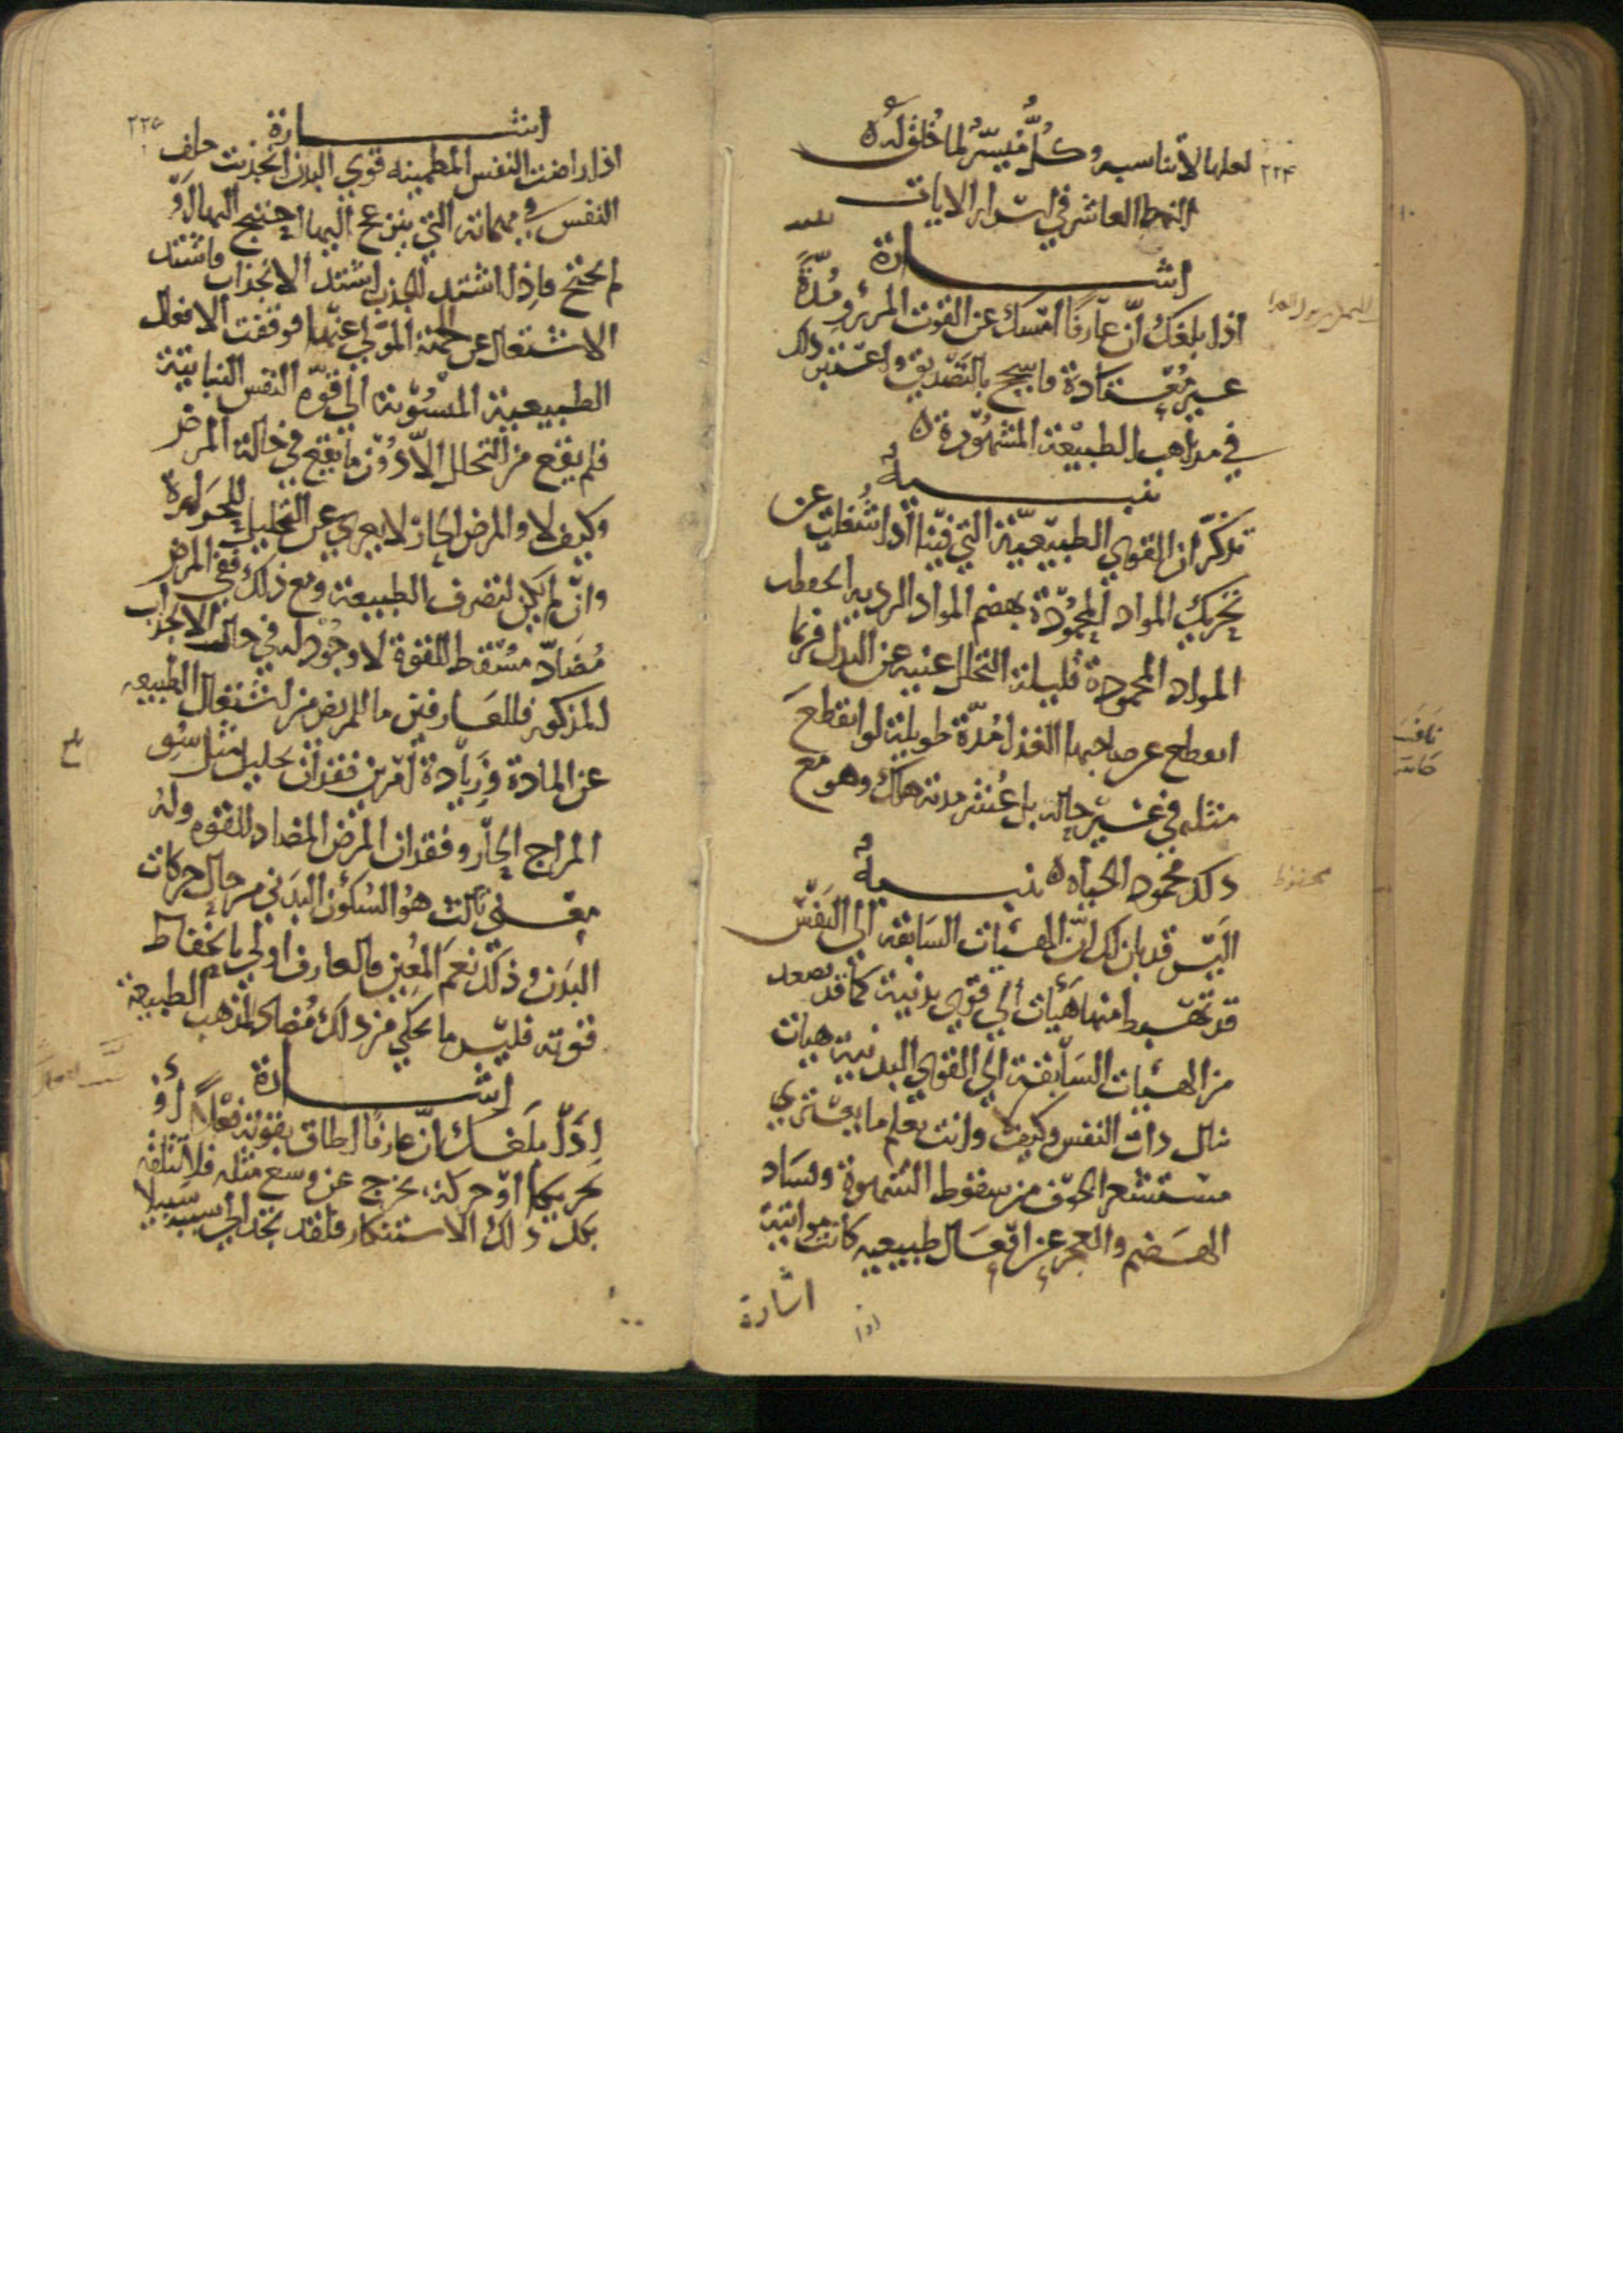 ٢٢٤
لعلها لا تناسبه وكلٌّ مُيَسَّرٌ لما خُلِقَ لَهُ ه
النمط العاشر في اسرار الايات
اشارة
اذا بلغك أنّ عارفًا امسك عن القوت المرزو مُدّةً
غير مُعتادة فاسجح بالتصديق واعتبر ذلك
في مذاهب الطبيعة المشهورة ه
تنبيه
تذكّر ان القوي الطبيعيّة التي فينا اذا شُغلت عن
تحريك المواد المحمودة بهضم المواد الردية انحفظت
المواد المحمودة قليلة التحلل غنية عن البدل فربما
انقطع عن صاحبها الغذا مُدّة طويلة لو انقطع
مثله في غير حاله بل عُشر مدته هلك وهو مع
ذلك محفوظ الحياة ه تنبيه
محفوظ
اليس قد بان لك انّ الهيئات السابقة الي النفس
قد تهبط منها هيئات الي قوي بدنية كما قد تصعد
من الهيئات السابقة الي القوي البدنية هيئات
تنال ذات النفس وكيف وانت تعلم ما يعتري
مستشعر الخوف من سقوط الشهوة وفساد
الهضم والعجز عن افعال طبيعيه كانت مواتية
اشارة
اذا
٢٢٥
اشارة
اذا راضت النفس المطمينه قوي البدن انجذبت خلف
النفس في مهماته التي ينزعج اليها احتيج اليها أو
لم يحتج فاذا اشتد الجذب اشتد الانجذاب فاشتد
الاشتغال عن الجهة المولي عنها فوقفت الافعال
الطبيعية المنسوبة الي قوة النفس النباتية
فلم يقع من التحلل الا دون ما يقع في حالة المرض
وكيف لا والمرض الحار لا يعري عن التحليل للحرارة
وان لم يكن لتصرف الطبيعة ومع ذلك ففي المرض
مُضادّ مسقط للقوة لا وجود له في حال الانجذاب
المذكور فللعارفين ما للمريض من اشتغال الطبيعه
عن المادة وزيادة امرين فقدان تحليل مثل سوء
المزاج الحار وفقدان المرض المضاد للقوه وله
معني ثالث هو السكون البدني من حال حركات
البدن وذلك نعم المعين فالعارف اولي بانحفاظ
قوته فليس ما يحكي من ذلك مُضادا لمذهب الطبيعة
اشارة
اذا بلغك انّ عارفًا اطاق بقوته فعلًا أو
تحريكا او حركة، يخرج عن وسع مثله فلا تتلقه
بكل ذلك الاستنكار فلقد تجد الي سببه سبيلا